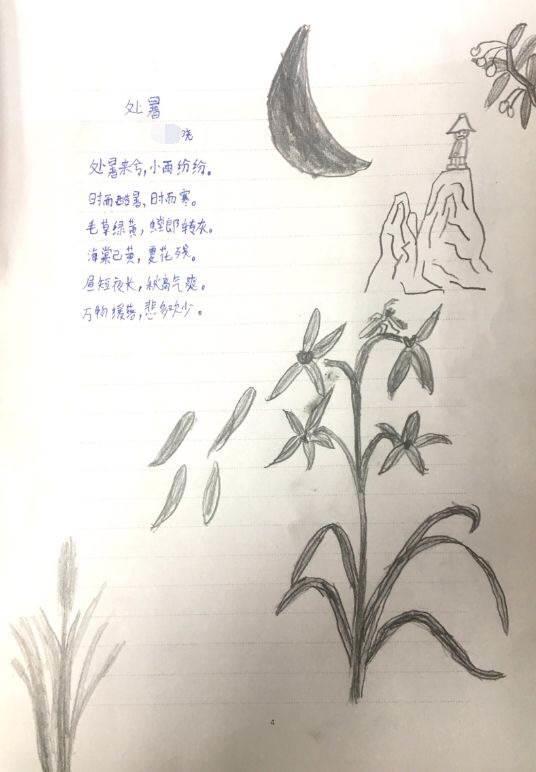 处暑
晓
处暑来兮,小雨纷纷。
时而酷暑,时而寒。
毛草绿黄,螳郎转灰。
海棠已黄,夏花残。
昼短夜长,秋高气爽。
万物缓落,悲多欢少。
4